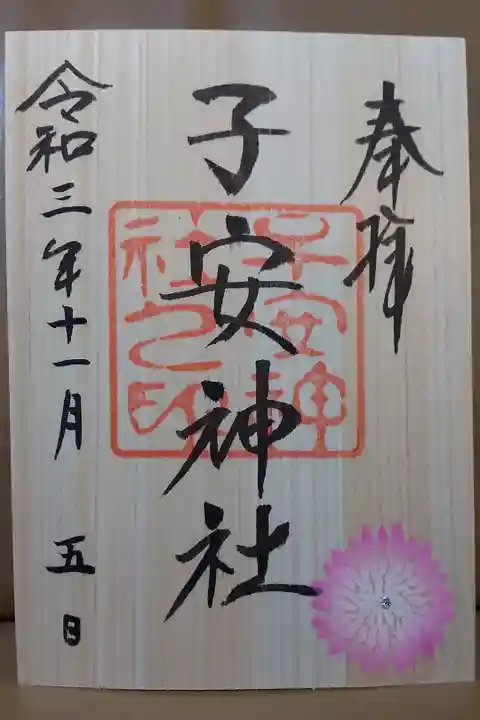 奉拝
子安神社
子安神
社之印
令和三年十一月 五日